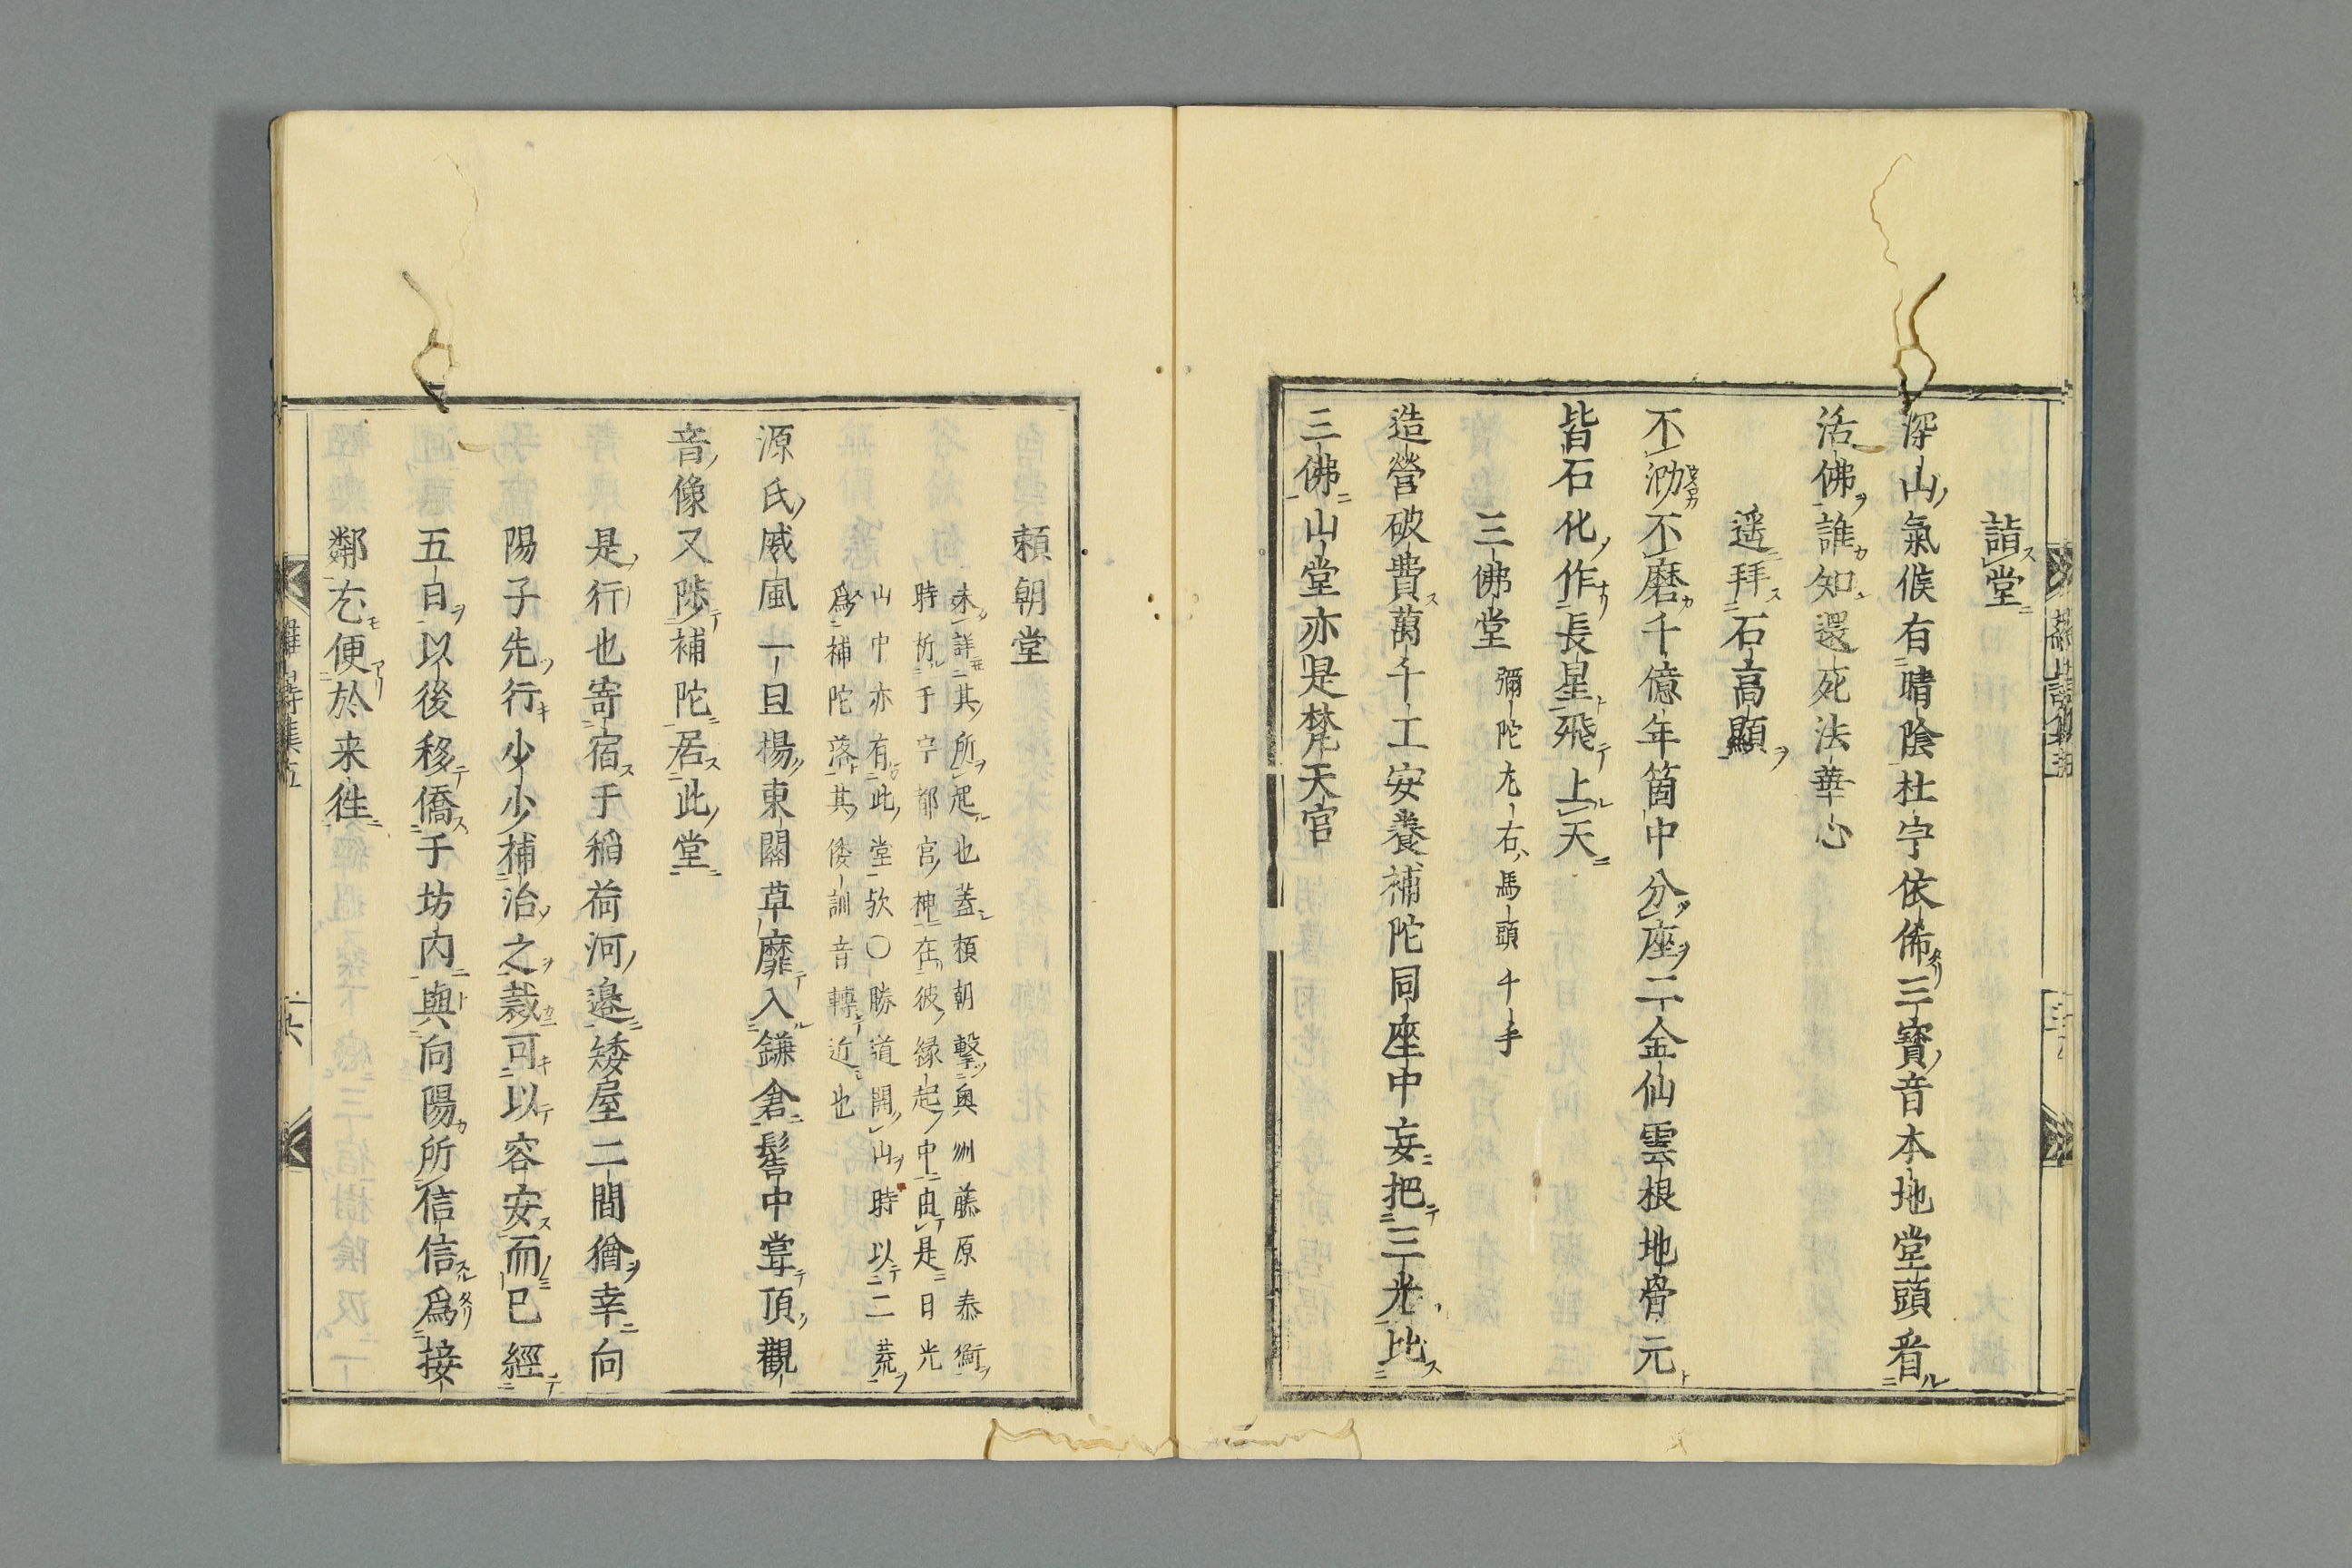 詣堂
深山氣候有晴陰杜宇依俙三寶音本地堂頭看
活佛誰知還死法華心
遥拜石高顯
不泐不磨千億年箇中分座二金仙雲根地骨元
皆石化作長星飛上天
三佛堂 彌陀左右馬頭千手
造營破費萬千工安養補陀同座中妄把三光比
三佛山堂亦是梵天宮
頼朝堂
未詳其所起也蓋頼朝撃奥州藤原泰衡
時祈于宇都宮神在彼縁起中由是日光
山中亦有此堂欤〇勝道開山時以二荒
爲補陀落其倭訓音轉近也
源氏威風一日楊東關草靡入鎌倉髻中甞頂觀
音像又陟補陀居此堂
是行也寄宿于稲荷河邊矮屋二間猶幸向
陽子先行少少補治之裁可以容安而已經
五日以後移僑于坊内與向陽所信信爲接
鄰尤便於来徃